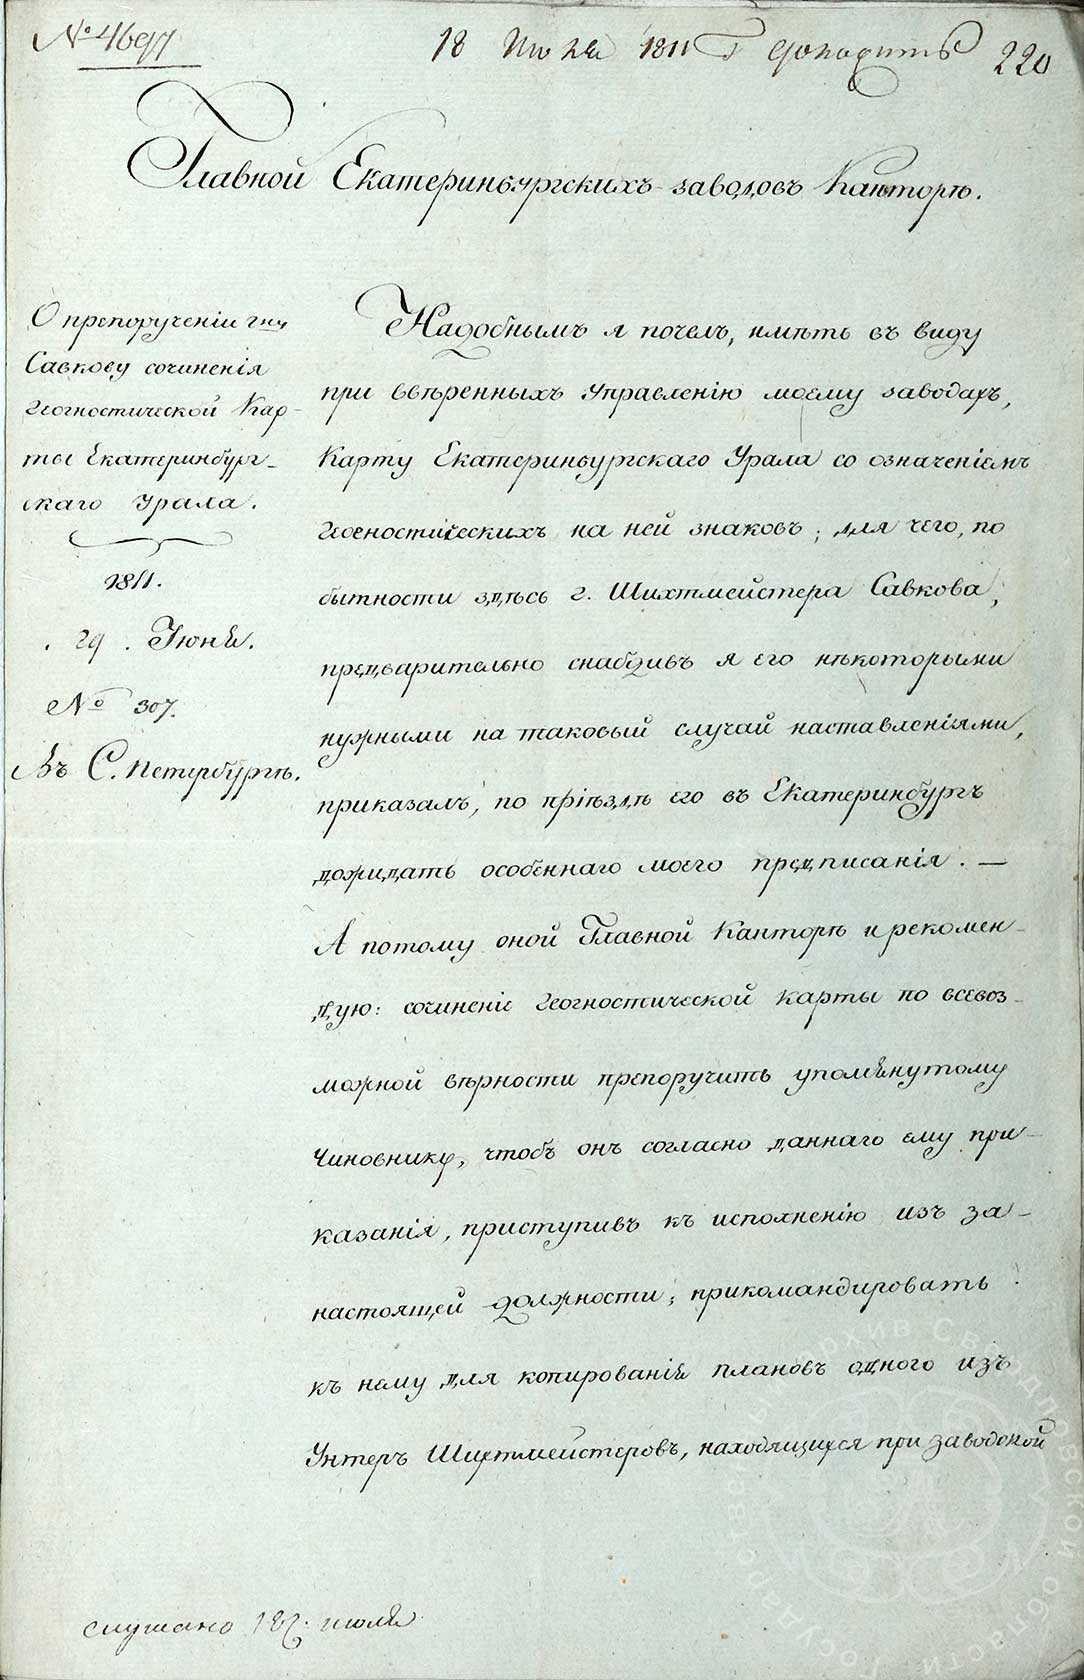 № 4697
18 Июля 1811 г доложить
220
Главной Екатеринбургскихъ заводовъ Канторѣ.
О препорученіи г-ну
Савкову сочиненія
Геогностической Кар-
ты Екатеринбург-
скаго Урала.
1811.
29 Іюня.
№ 307.
Въ С. Петербургѣ.
Надобнымъ я почелъ, имѣть въ виду
при ввѣренныхъ управленію моему заводахъ,
Карту Екатеринбургскаго Урала со означеніемъ
Геогностическихъ на ней знаковъ; для чего, по
бытности здѣсь г. Шихтмейстера Савкова,
предварительно снабдивъ я его нѣкоторыми
нужными на таковый случай наставленіями,
приказалъ, по пріѣздѣ его въ Екатеринбургъ
дожидать особеннаго моего предписанія. —
А потому оной Главной Канторѣ и рекомен-
дую: сочиненіе Геогностической карты по всевоз-
можной вѣрности препоручить упомянутому
Чиновнику, чтобъ онъ согласно даннаго ему при-
казанія, приступивъ къ исполненію изъ за-
настоящей должности; прикомандировать
къ нему для копированія плановъ одного изъ
Унтеръ Шихтмейстеровъ, находящихся при заводской
слушано 18 июля
Государственный архив Свердловской области